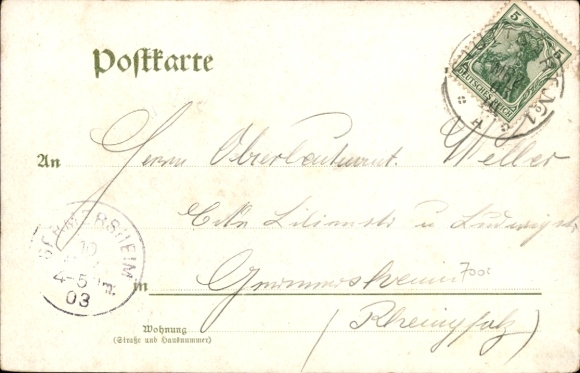 Postkarte
5 5
DEUTSCHES REICH
No 1
An Herrn Oberleutnant. Weller
Ecke Lilienstr u Ludwigstr
in Germersheim
(Rheinpfalz)
GERMERSHEIM
10
4-5 Nm.
03
Wohnung
(Straße und Hausnummer)